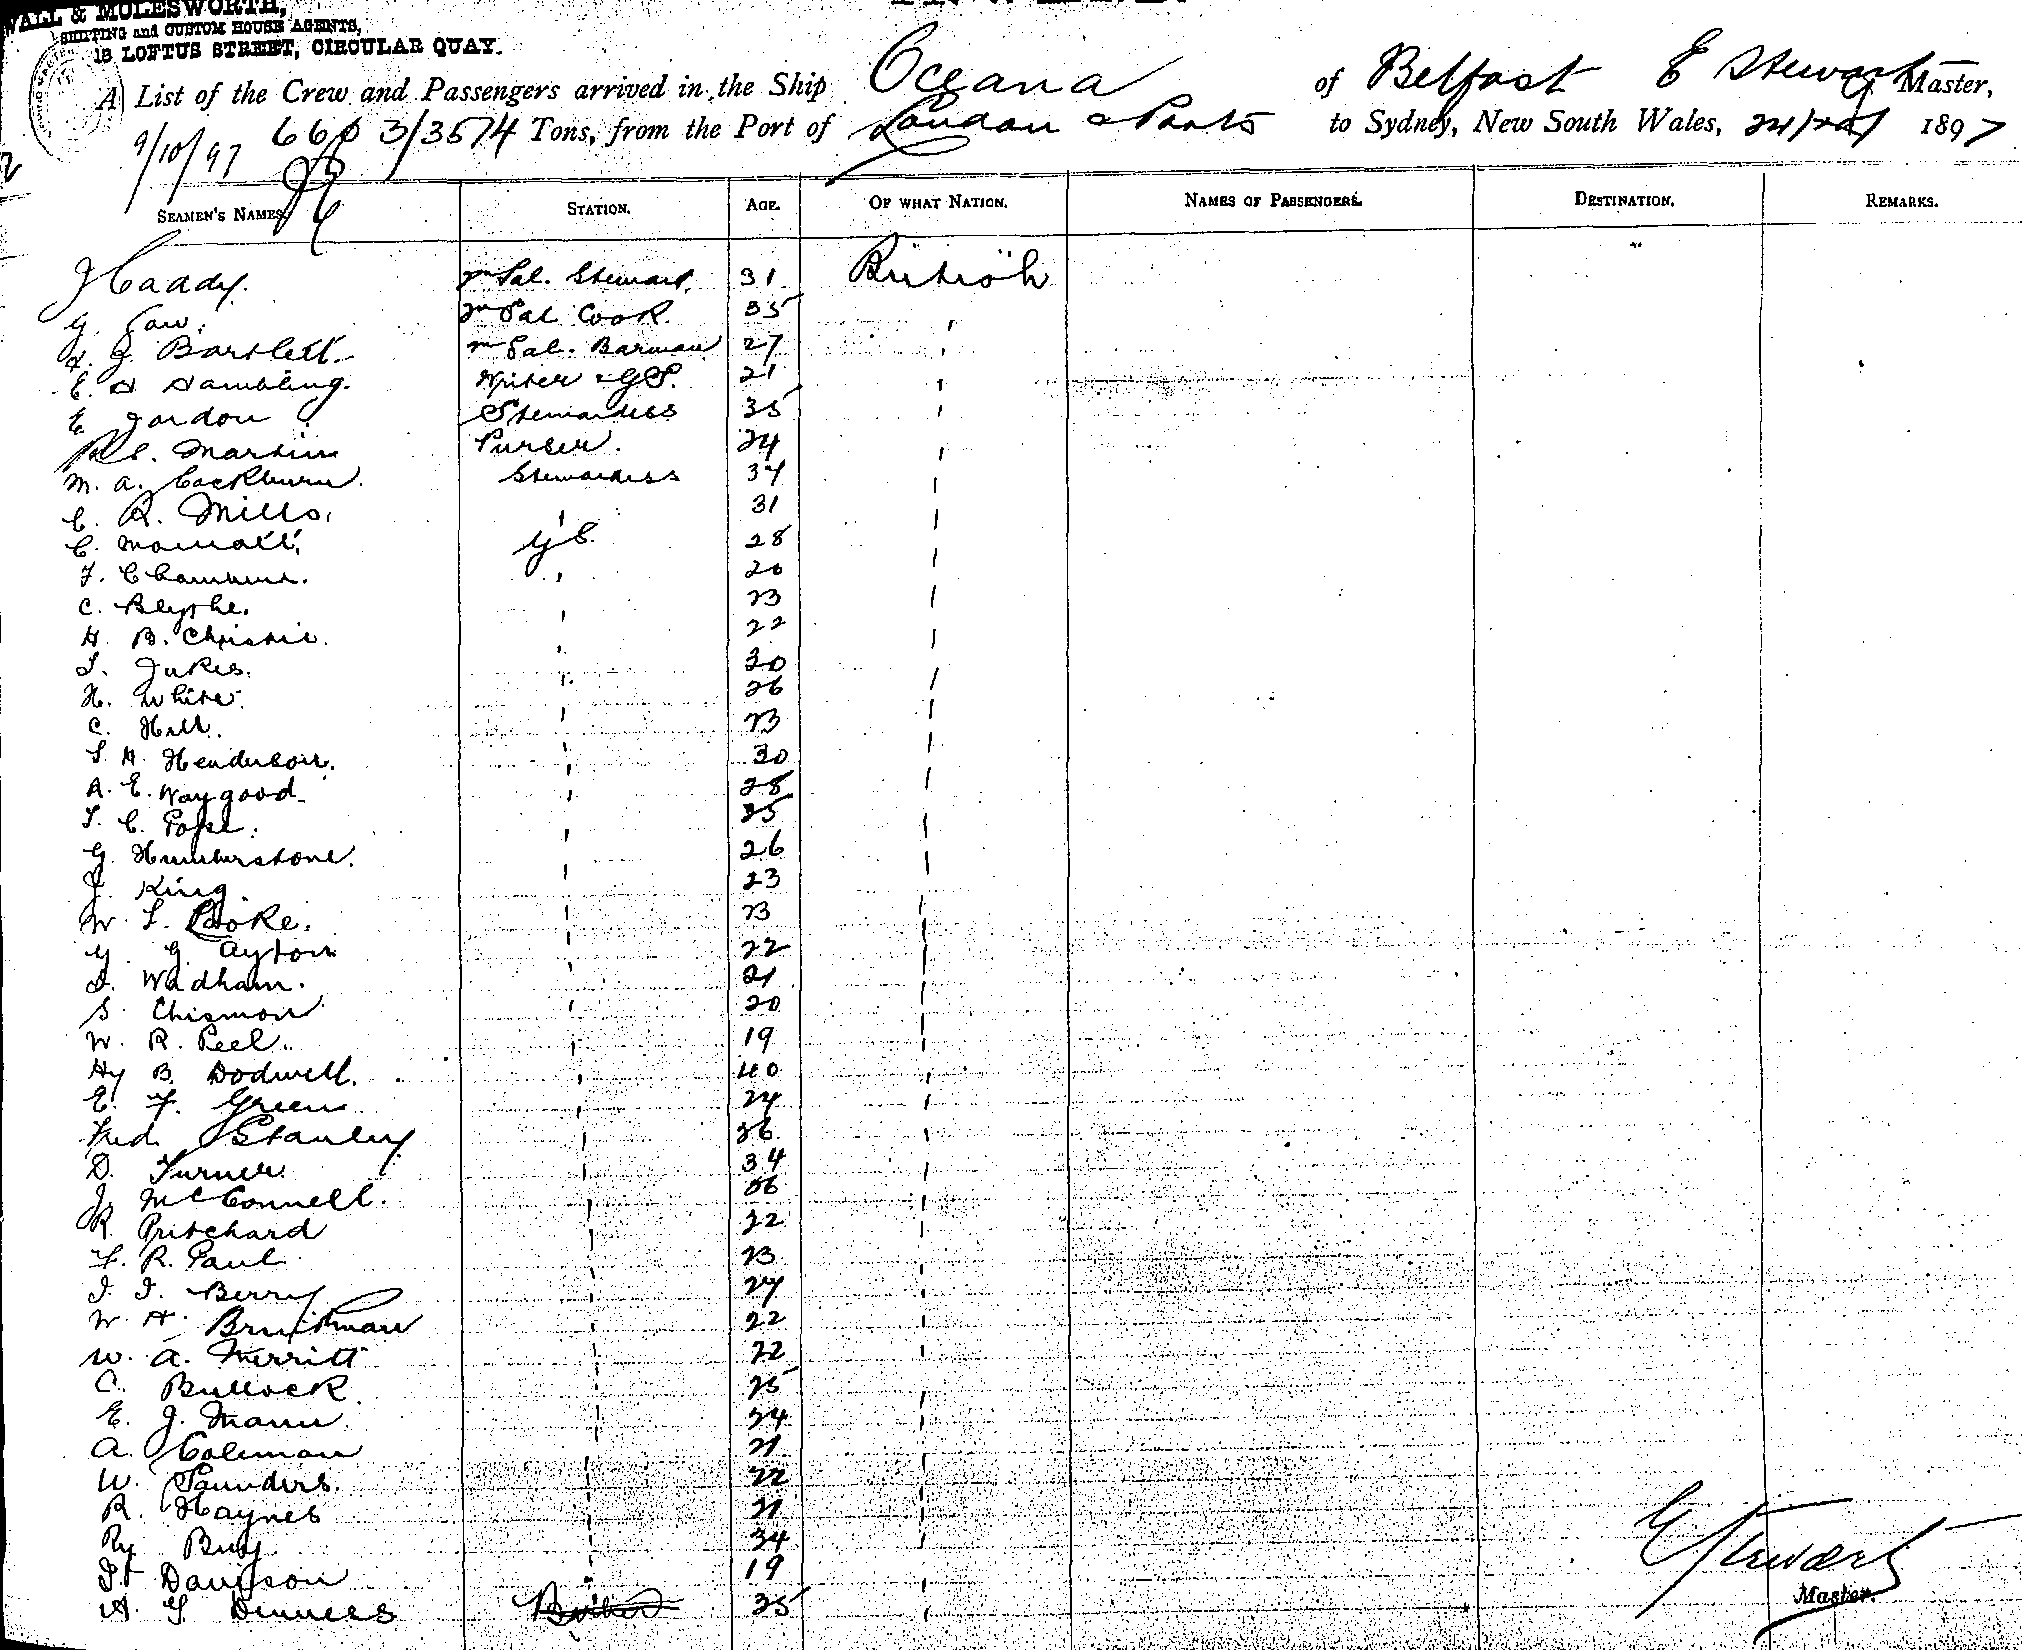 WALL & MOLESWORTH,
SHIPPING and CUSTOM HOUSE AGENTS,
18 LOFTUS STREET, CIRCULAR QUAY.
A List of the Crew and Passengers arrived in the Ship Oceana of Belfast E Stewart Master,
6603/3574 Tons, from the Port of London & Ports to Sydney, New South Wales, 1897
9/10/97
SEAMEN'S NAMES. STATION. AGE. OF WHAT NATION. NAMES OF PASSENGERS. DESTINATION. REMARKS.
Sal. Steward. 31 British
G. Sal Cook. 35
J. Bartlett. Sal. Barman 27
E. H Hambling. Writer & G.S. 21
E. Gordon Stewardess 35
Martin Purser.
M. A. Cockburn. Stewardess
C. R. Mills. 31
C. G S. 28
F. Chambers.
C. Blythe. 23
H. B. Christie. 22
Jukes. 30
H. White. 26
C. Hill. 23
H. Henderson. 30
A. E. Waygood. 28
C. Pope.
G. Humberstone. 26
J. King. 23
W. Cooke. 23
G. G. Ayton 22
Wadham. 21
S. Chismon 20
W. R. Peel. 19
Hy B. Dodwell. 40
E. F. Green 24
Fred Stanley
D. Turner. 34
J. McConnell.
R Pritchard 22
F. R. Paul 23
Berry
W. H.
W. A. Merritt 22
C. Bullock. 25
E. J. Mann. 24
A. Coleman 21
W. Saunders. 22
R. Haynes 21
34
Davison 19
25
E Stewart
Master.